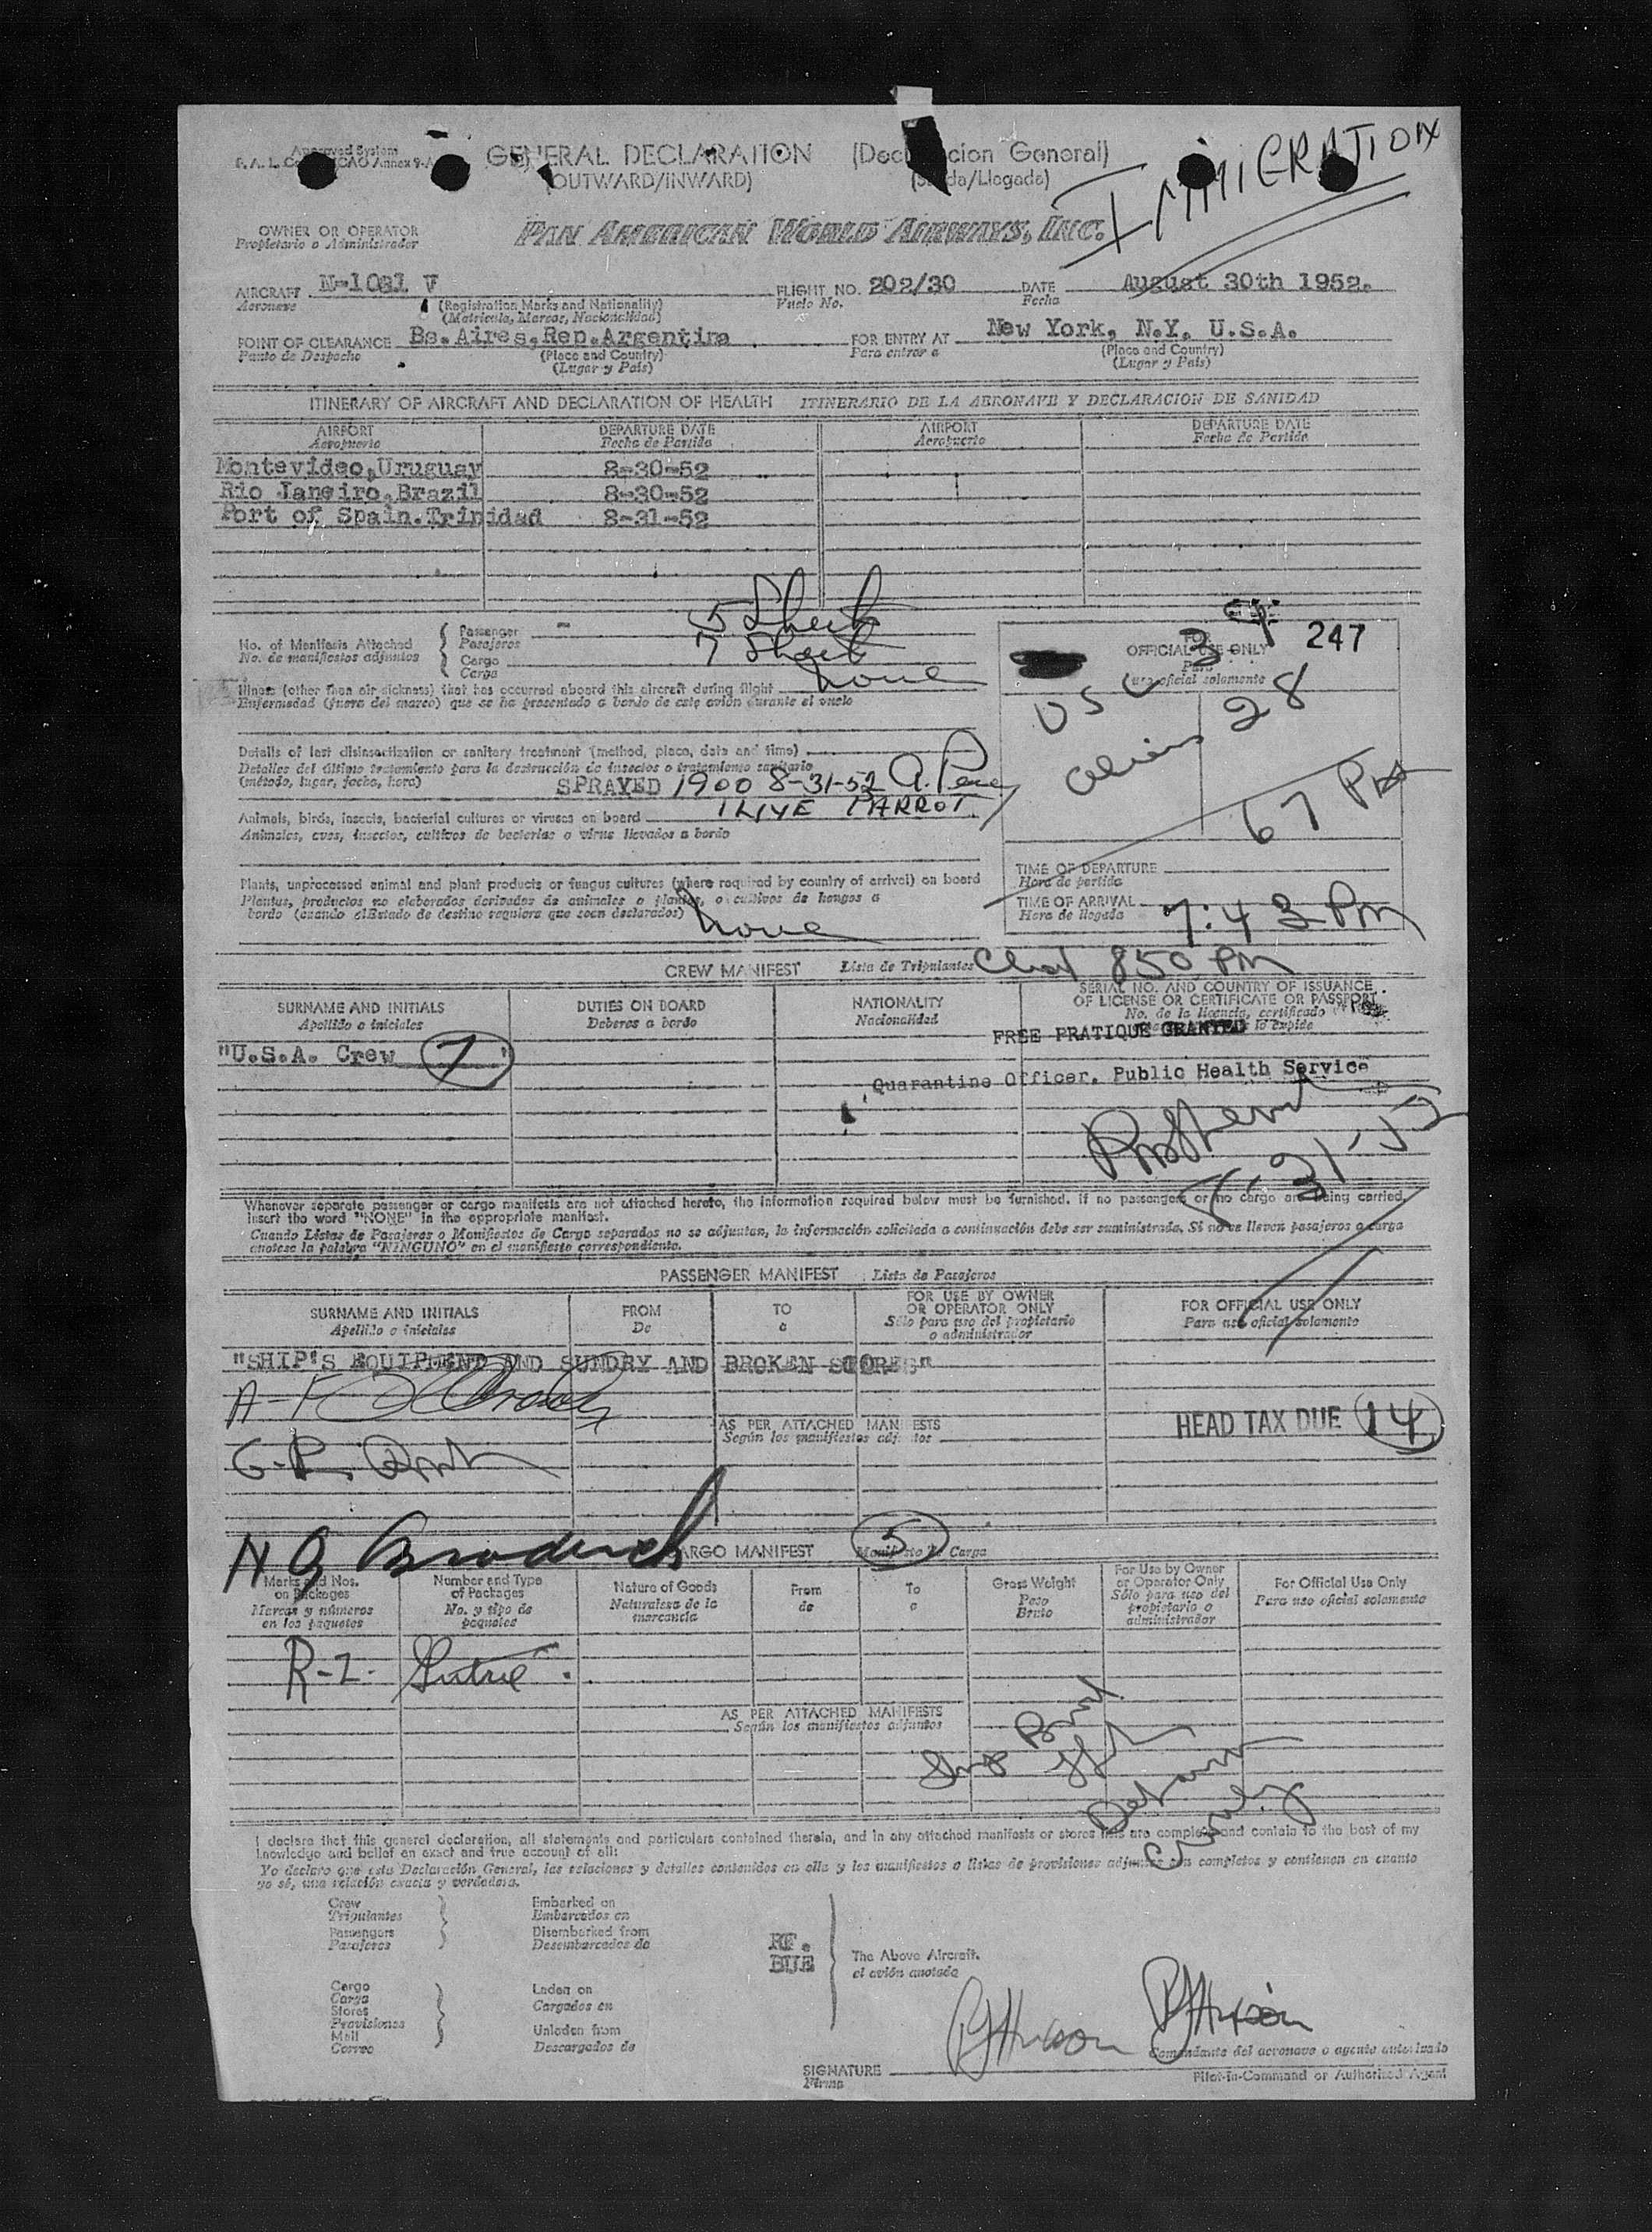 Approved System
GENERAL DECLARATION (Declaracion General)
(OUTWARD/INWARD) (Salida/Llegada)
IMMIGRATION
OWNER OR OPERATOR
Propietario o Administrador
PAN AMERICAN WORLD AIRWAYS, INC.
AIRCRAFT N-1031 V FLIGHT NO. 202/30 DATE August 30th 1952.
Aeronave (Registration Marks and Nationality) Vuelo No. Fecha
(Matrícula, Marcas, Nacionalidad)
POINT OF CLEARANCE Bs.Aires,Rep.Argentina FOR ENTRY AT New York, N.Y. U.S.A.
Punto de Despacho (Place and Country) Para entrar a (Place and Country)
(Lugar y País) (Lugar y País)
ITINERARY OF AIRCRAFT AND DECLARATION OF HEALTH ITINERARIO DE LA AERONAVE Y DECLARACION DE SANIDAD
AIRPORT DEPARTURE DATE AIRPORT DEPARTURE DATE
Aeropuerto Fecha de Partida Aeropuerto Fecha de Partida
Montevideo,Uruguay 8-30-52
Rio Janeiro,Brazil 8-30-52
Port of Spain.Trinidad 8-31-52
No. of Manifests Attached Passenger - 5 Sheets
No. de manifiestos adjuntos Pasajeros
Cargo 7 Sheets
Carga
FOR OFFICIAL USE ONLY 247
Para uso oficial solamente
USC 39
Aliens 28
67 PAX
Illness (other than air sickness) that has occurred aboard this aircraft during flight none
Enfermedad (fuera del mareo) que se ha presentado a bordo de este avión durante el vuelo
Details of last disinsectization or sanitary treatment (method, place, date and time)
Detalles del último tratamiento para la destrucción de insectos o tratamiento sanitario
(método, lugar, fecha, hora) SPRAYED 1900 8-31-52
Animals, birds, insects, bacterial cultures or viruses on board 1 LIVE PARROT
Animales, aves, insectos, cultivos de bacterias o virus llevados a bordo
Plants, unprocessed animal and plant products or fungus cultures (where required by country of arrival) on board
Plantas, productos no elaborados derivados de animales o plantas, o cultivos de hongos a
bordo (cuando el Estado de destino requiera que sean declarados) none
TIME OF DEPARTURE
Hora de partida
TIME OF ARRIVAL 7:43 Pm
Hora de llegada
CREW MANIFEST Lista de Tripulantes 850 PM
SURNAME AND INITIALS DUTIES ON BOARD NATIONALITY SERIAL NO. AND COUNTRY OF ISSUANCE
Apellido o iniciales Deberes a bordo Nacionalidad OF LICENSE OR CERTIFICATE OR PASSPORT
No. de la licencia, certificado
"U.S.A. Crew 7 "
FREE PRATIQUE GRANTED
Quarantine Officer, Public Health Service
8-31-52
Whenever separate passenger or cargo manifests are not attached hereto, the information required below must be furnished. If no passengers or no cargo are being carried,
insert the word "NONE" in the appropriate manifest.
Cuando Listas de Pasajeros o Manifiestos de Carga separados no se adjuntan, la información solicitada a continuación debe ser suministrada. Si no se llevan pasajeros o carga
anotese la palabra "NINGUNO" en el manifiesto correspondiente.
PASSENGER MANIFEST Lista de Pasajeros
SURNAME AND INITIALS FROM TO FOR USE BY OWNER OR OPERATOR ONLY FOR OFFICIAL USE ONLY
Apellido o iniciales De a Sólo para uso del propietario o administrador Para uso oficial solamente
"SHIP'S EQUIPMENT AND SUNDRY AND BROKEN STORES"
AS PER ATTACHED MANIFESTS
Según los manifiestos adjuntos
HEAD TAX DUE 14
N G Broderick
CARGO MANIFEST 5 Manifiesto de Carga
Marks and Nos. on Packages Number and Type of Packages Nature of Goods From To Gross Weight For Use by Owner or Operator Only For Official Use Only
Marcas y números en los paquetes No. y tipo de paquetes Naturaleza de la mercancía de a Peso Bruto Sólo para uso del propietario o administrador Para uso oficial solamente
AS PER ATTACHED MANIFESTS
Según los manifiestos adjuntos
I declare that this general declaration, all statements and particulars contained therein, and in any attached manifests or stores lists are complete and contain to the best of my
knowledge and belief an exact and true account of all:
Yo declaro que esta Declaración General, las relaciones y detalles contenidos en ella y los manifiestos o listas de provisiones adjuntos son completos y contienen en cuanto
yo sé, una relación exacta y verdadera.
Crew Embarked on
Tripulantes Embarcados en
Passengers Disembarked from
Pasajeros Desembarcados de
RF.
BUE
The Above Aircraft.
el avión anotado
Cargo Laden on
Carga Cargados en
Stores
Provisiones
Mail Unladen from
Correo Descargados de
Comandante del aeronave o agente autorizado
SIGNATURE
Firma
Pilot-in-Command or Authorized Agent